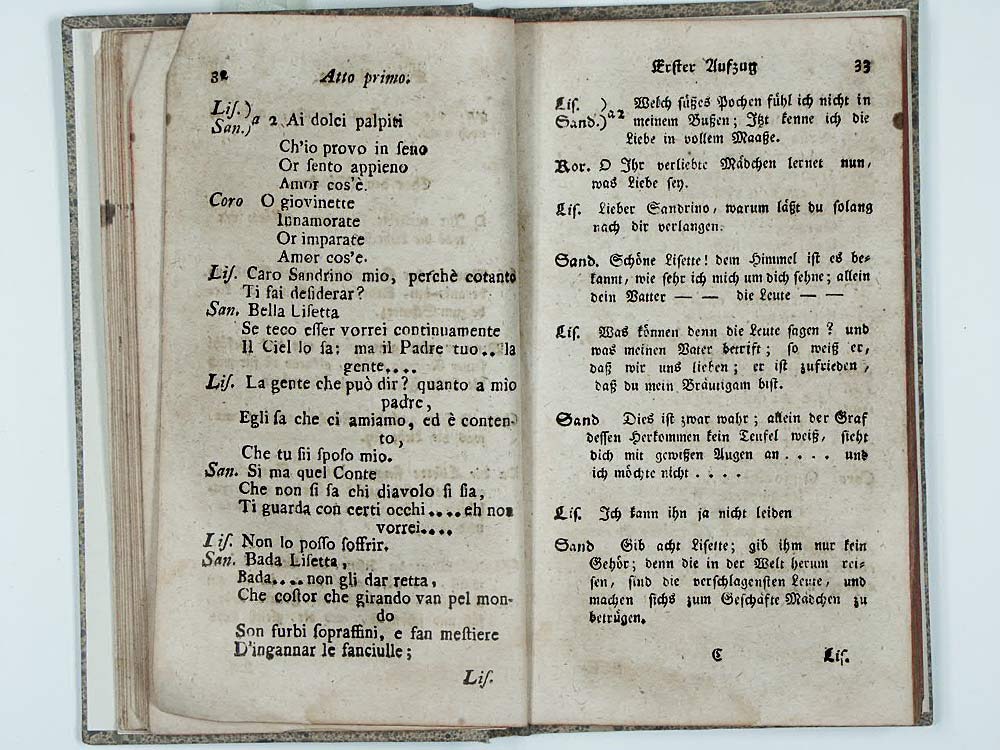 32 Atto primo.
Liſ.)
San.) a 2 Ai dolci palpiti
Ch'io provo in ſeno
Or ſento appieno
Amor cos'è.
Coro O giovinette
Innamorate
Or imparate
Amor cos'e.
Liſ. Caro Sandrino mio, perſchè cotanto
Ti fai deſiderar?
San. Bella Liſetta
Se teco eſſer vorrei continuamente
Il Ciel lo ſa; ma il Padre tuo.. la
gente....
Liſ. La gente che può dir? quanto a mio
padre,
Egli ſa che ci amiamo, ed è conten-
to,
Che tu ſii ſpoſo mio.
San. Si ma quel Conte
Che non ſi ſa chi diavolo ſi ſia,
Ti guarda con certi occhi.... eh non
vorrei....
Liſ. Non lo poſſo ſoffrir.
San. Bada Liſetta,
Bada.... non gli dar retta,
Che coſtor che girando van pel mon-
do
Son furbi ſopraffini, e fan meſtiere
D'ingannar le fanciulle;
Liſ.
Erſter Aufzug 33
Liſ. ) Welch ſüßes Pochen fühl ich nicht in
Sand.) a 2 meinem Bußen; Itzt kenne ich die
Liebe in vollem Maaße.
Kor. O Ihr verliebte Mädchen lernet nun,
was Liebe ſey.
Liſ. Lieber Sandrino, warum läßt du ſolang
nach dir verlangen.
Sand. Schöne Liſette! dem Himmel iſt es be-
kannt, wie ſehr ich mich um dich ſehne; allein
dein Vatter — — die Leute — —
Liſ. Was können denn die Leute ſagen? und
was meinen Vater betrift; ſo weiß er,
daß wir uns lieben; er iſt zufrieden,
daß du mein Bräutigam biſt.
Sand Dies iſt zwar wahr; allein der Graf
deſſen Herkommen kein Teufel weiß, ſieht
dich mit gewißen Augen an.... und
ich möchte nicht....
Liſ. Ich kann ihn ja nicht leiden
Sand Gib acht Liſette; gib ihm nur kein
Gehör; denn die in der Welt herum rei-
ſen, ſind die verſchlagenſten Leute, und
machen ſichs zum Geſchäfte Mädchen zu
betrügen.
C Liſ.